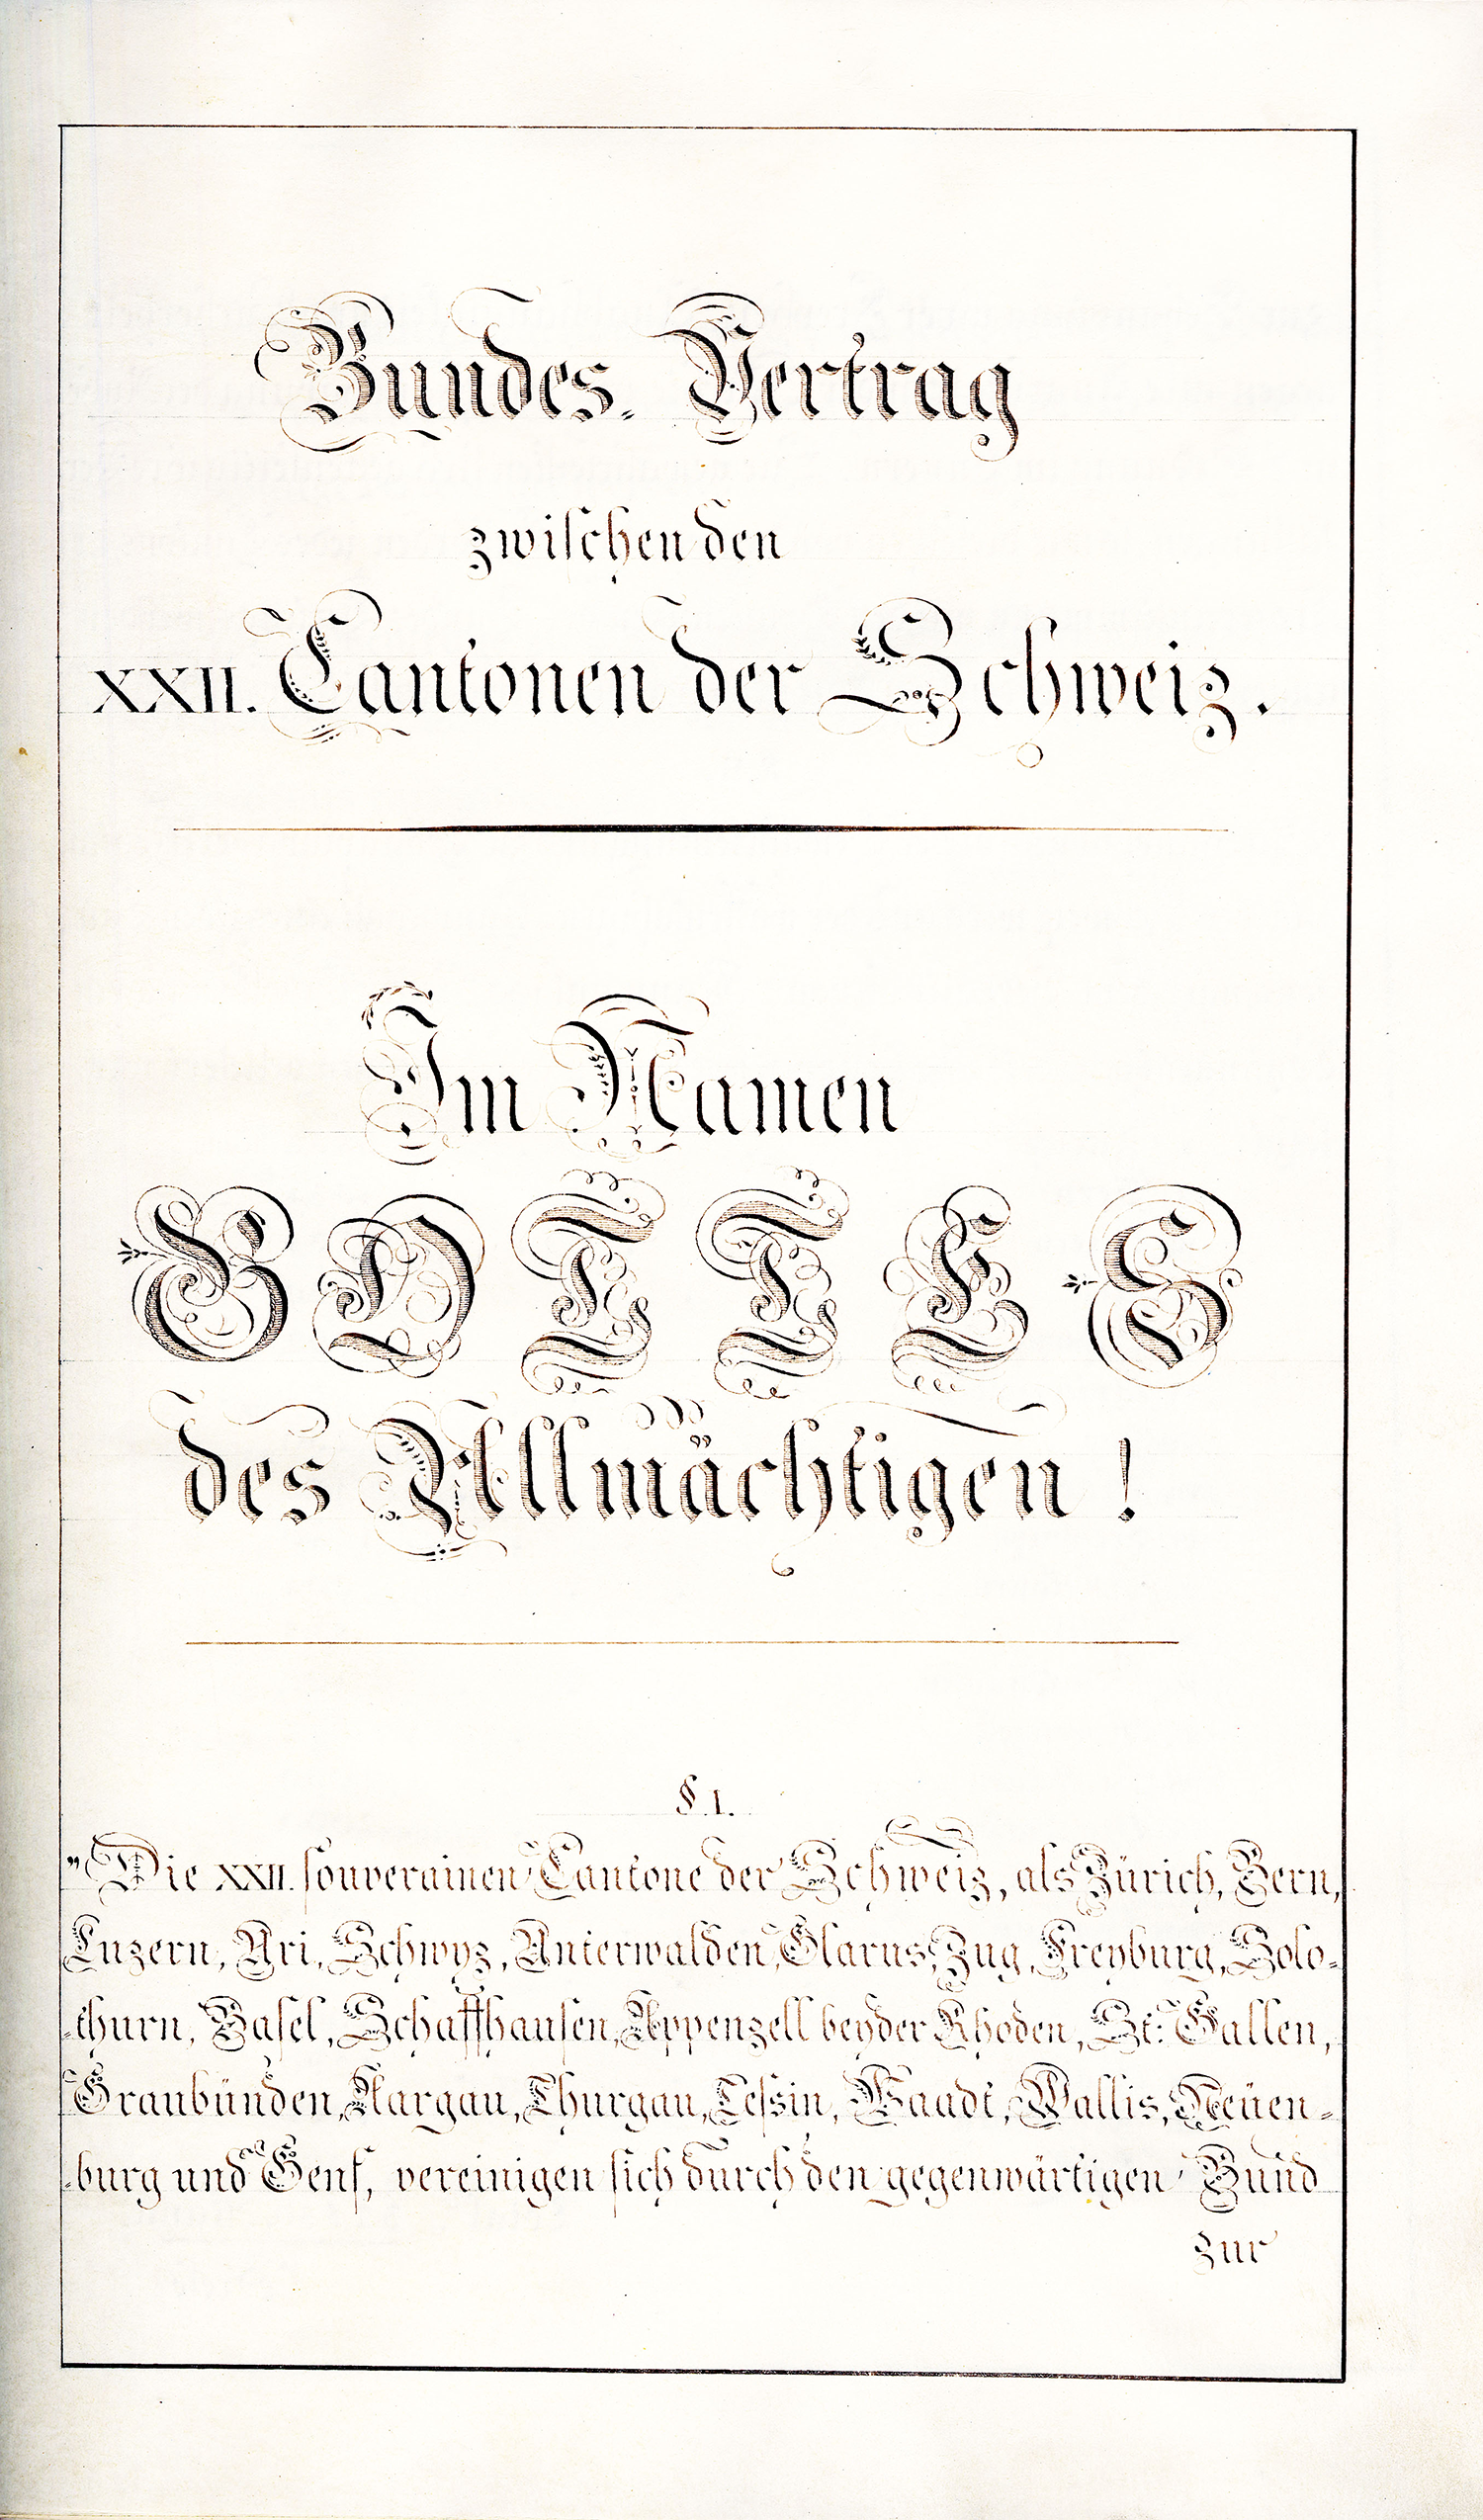 Bundes. Vertrag
zwischen den
XXII. Cantonen der Schweiz.
Im Namen
GOTTES
des Allmächtigen !
§. 1.
„Die XXII. souverainen Cantone der Schweiz, als Zürich, Bern,
Luzern, Uri, Schwyz, Unterwalden, Glarus, Zug, Freyburg, Solo-
thurn, Basel, Schaffhausen, Appenzell beyder Rhoden, St: Gallen,
Graubünden, Aargau, Thurgau, Tessin, Waadt, Wallis, Neuen-
burg und Genf, vereinigen sich durch den gegenwärtigen Bund
zur